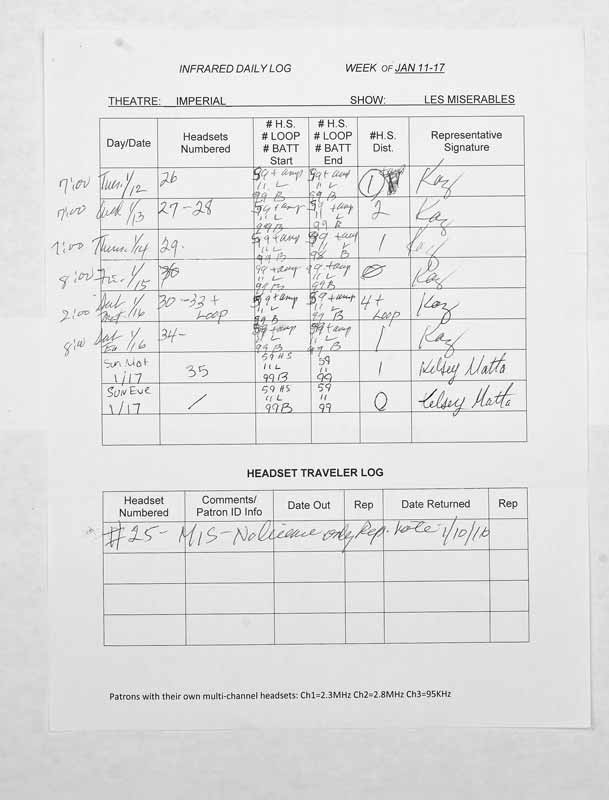 INFRARED DAILY LOG WEEK OF JAN 11-17
THEATRE: IMPERIAL SHOW: LES MISERABLES
Day/Date Headsets Numbered # H.S. # LOOP # BATT Start # H.S. # LOOP # BATT End #H.S. Dist. Representative Signature
7:00 Tues. 1/12 26 59 + amp 11 L 99 B 59 + amp 11 L 59 B 1 Kaz
7:00 Wed 1/13 27-28 59 + amp 11 L 99 B 59 + amp 11 L 99 B 2 Kaz
7:00 Thurs. 1/14 29. 59 + amp 11 L 99 B 59 + amp 11 L 98 B 1 Kaz
8:00 Fri. 1/15 59 + amp 11 L 99 B 59 + amp 11 L 99 B 0 Kaz
2:00 Sat Mat 1/16 30-33 + Loop 59 + amp 11 L 99 B 59 + amp 11 L 99 B 4 + Loop Kaz
8:00 Sat Ev 1/16 34- 59 + amp 11 L 99 B 59 + amp 11 L 99 B 1 Kaz
Sun Mat 1/17 35 59 HS 11 L 99 B 59 11 99 1 Kelsey Matta
Sun Eve 1/17 / 59 HS 11 L 99 B 59 11 99 0 Kelsey Matta
HEADSET TRAVELER LOG
Headset Numbered Comments/ Patron ID Info Date Out Rep Date Returned Rep
#25 - MIS - No license only Rep. note 1/10/16
Patrons with their own multi-channel headsets: Ch1=2.3MHz Ch2=2.8MHz Ch3=95KHz